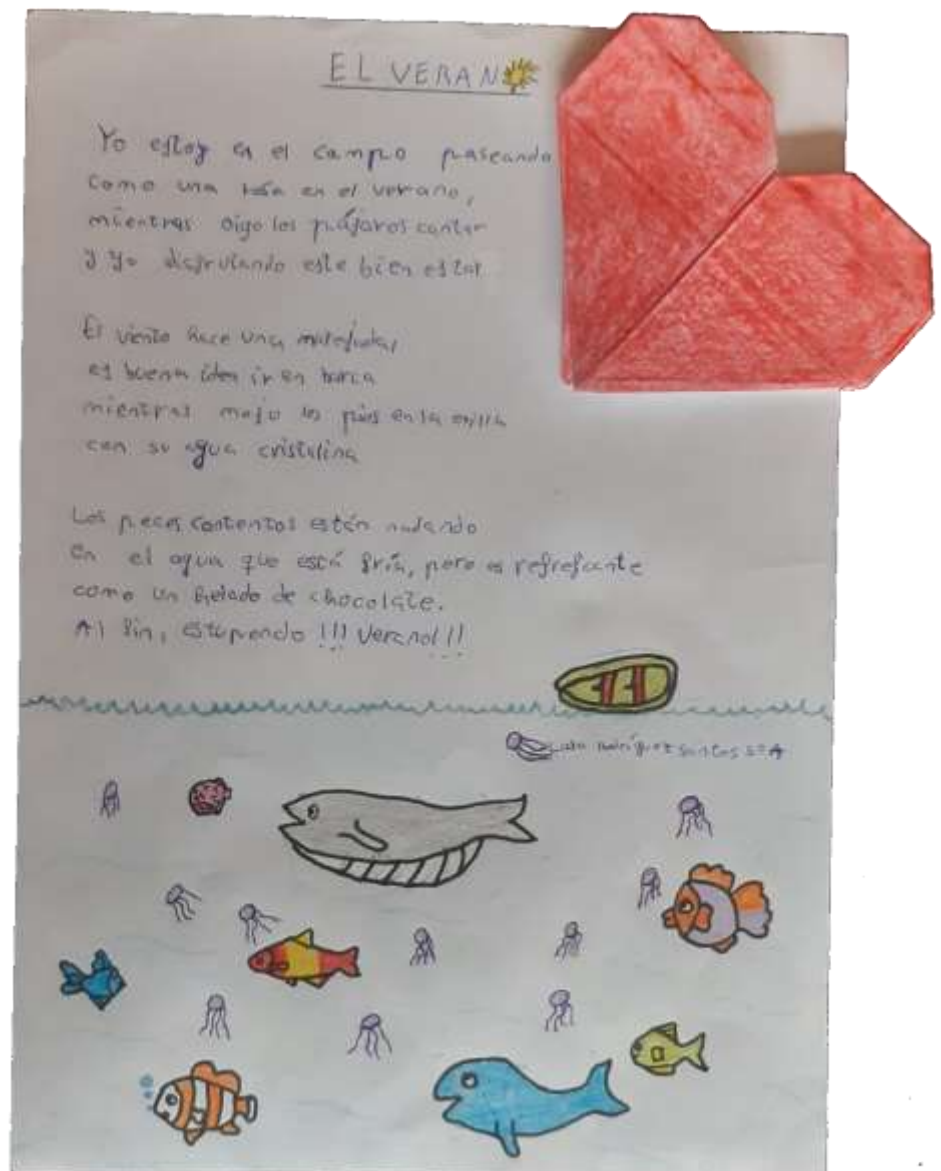 EL VERANO
Yo estoy en el campo paseando
como una rosa en el verano,
mientras oigo los pájaros cantar
y yo disfrutando este bien estar
El viento hace una
es buena idea ir en barca
mientras mojo los pies en la orilla
con su agua cristalina
Los peces contentos están nadando
en el agua que está fría, pero es refrescante
como un helado de chocolate.
Al fin, estupendo !!! Verano!!!
Rodríguez Santos 5º A